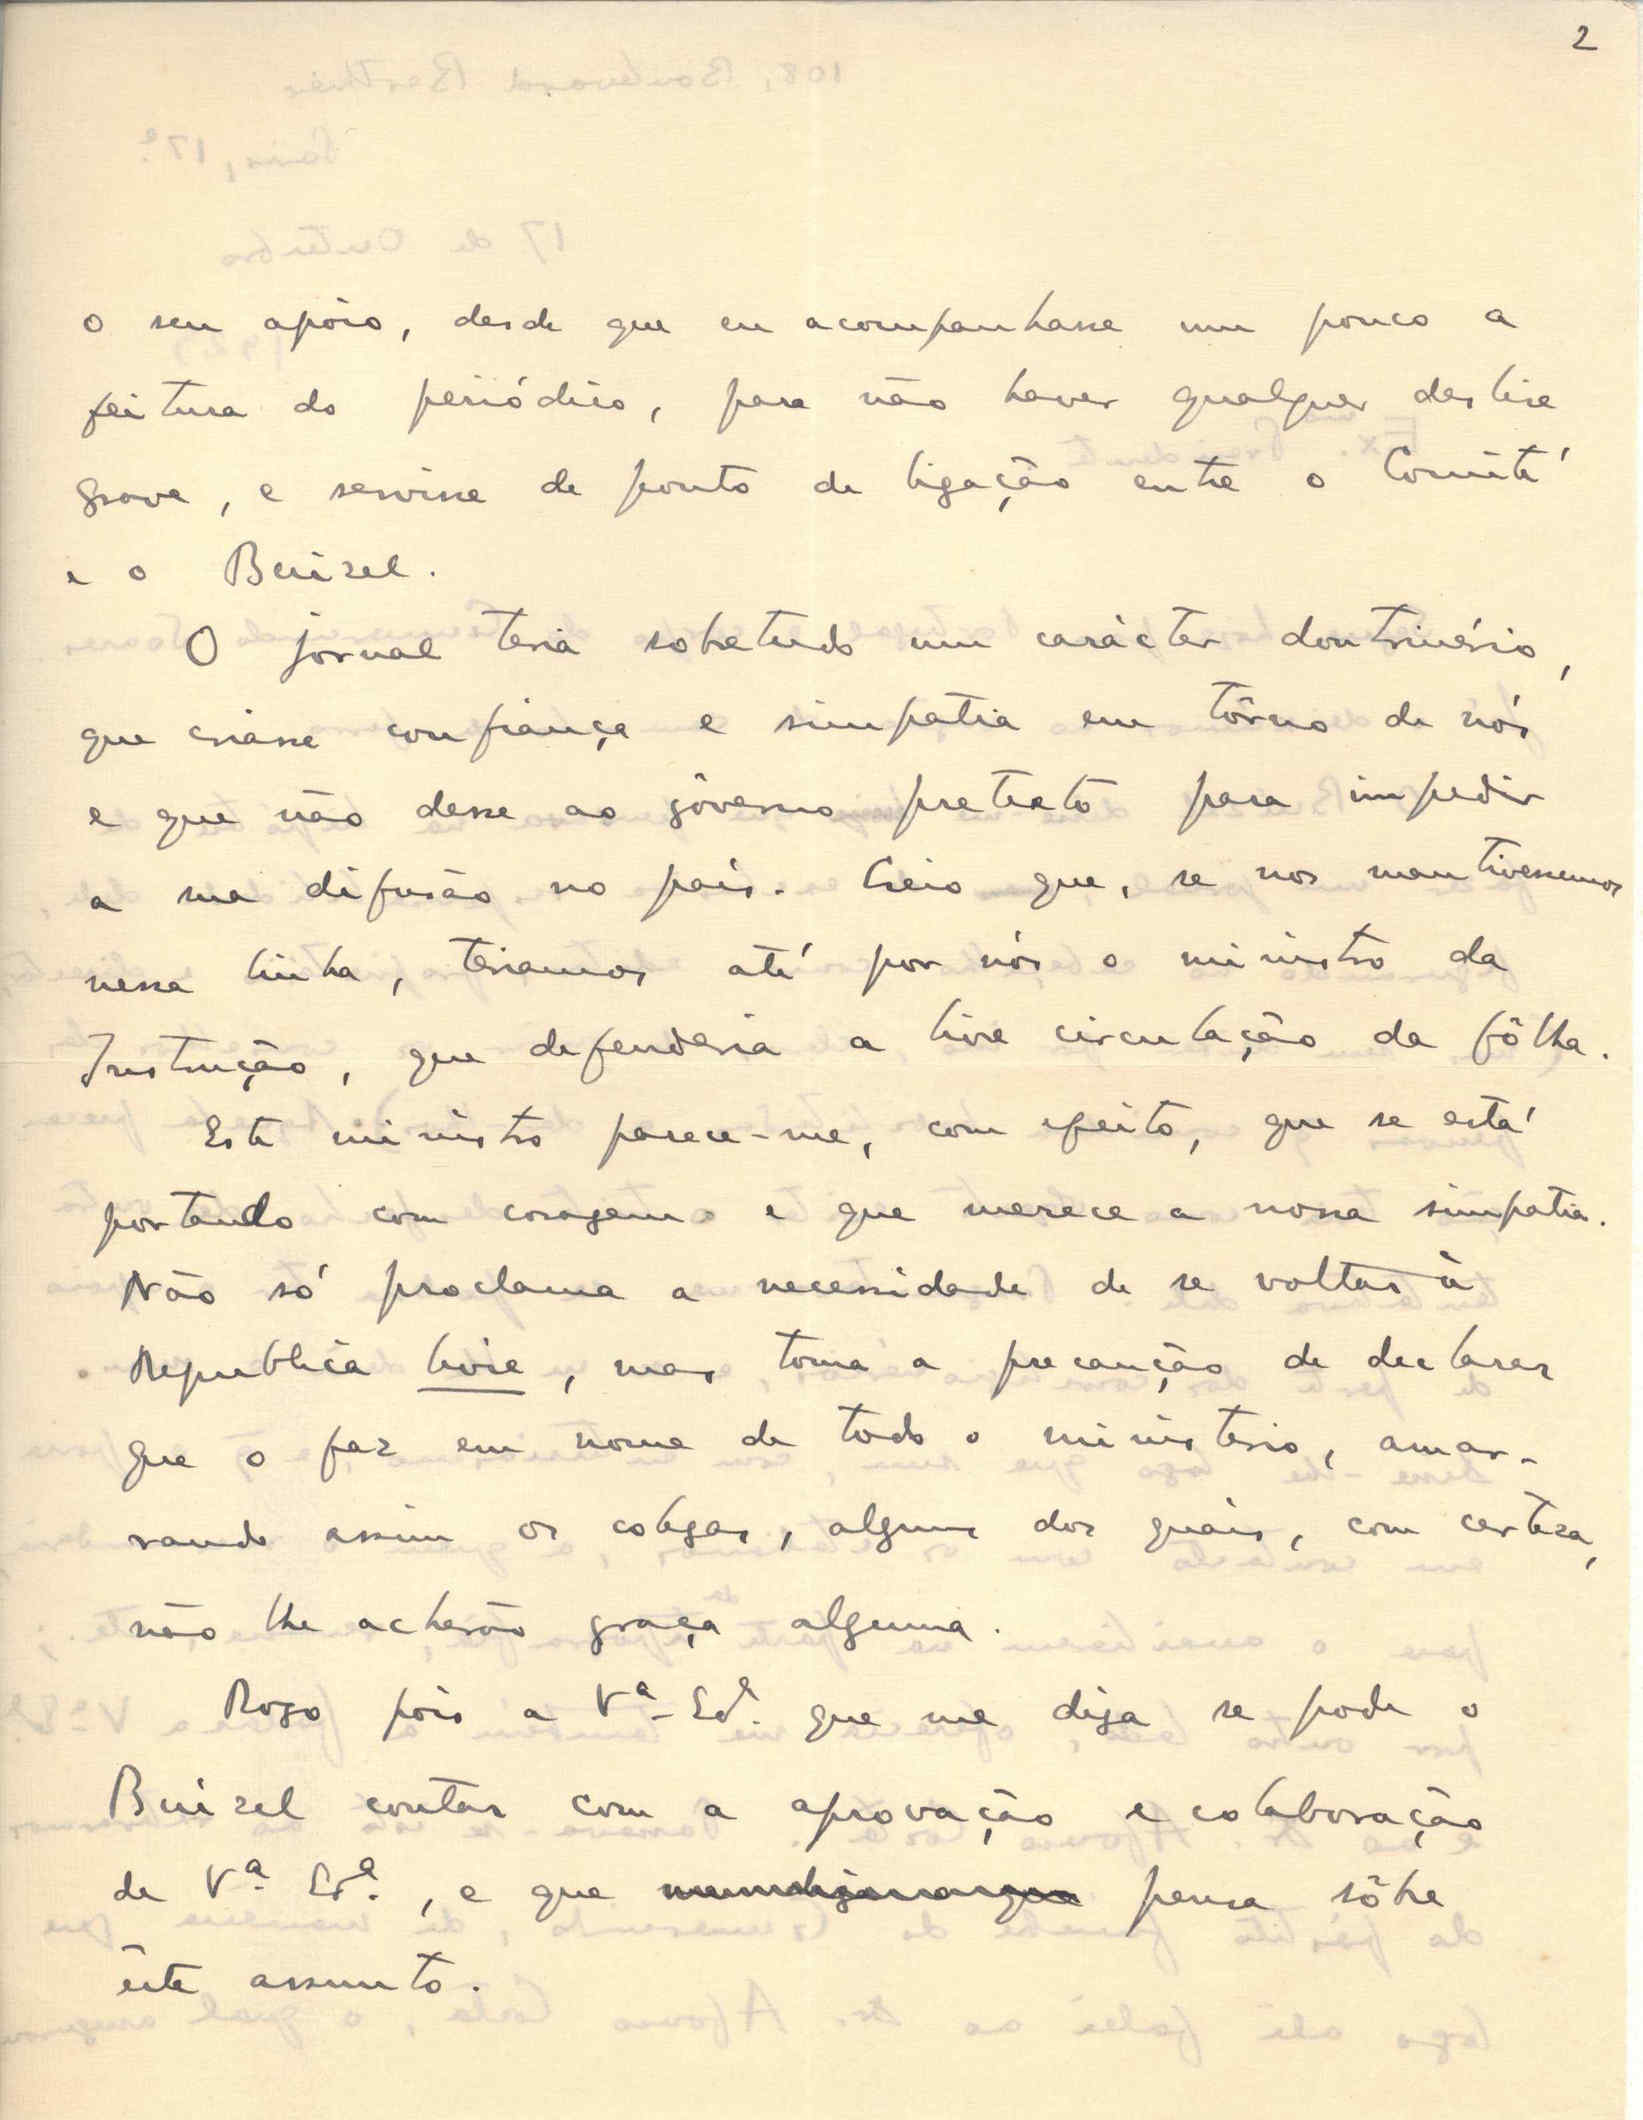 2
o seu apôio, desde que eu acompanhasse um pouco a
feitura do periódico, para não haver qualquer deslise
grave, e servisse de ponto de ligação entre o Comité
e o Buisel.
O jornal teria sobretudo um carácter doutrinário,
que criasse confiança e simpatia em tôrno de nós
e que não desse ao govêrno pretexto para impedir
a sua difusão no país. Creio que, se nos mantivessemos
nessa linha, teriamos até por nós o ministro da
Instrução, que defenderia a livre circulação da fôlha.
Este ministro parece-me, com efeito, que se está
portando com coragem e que merece a nossa simpatia.
Não só proclama a necessidade de se voltar à
Republica livre, mas toma a precaução de declarar
que o faz em nome de todo o ministerio, amar-
rando assim os colegas, alguns dos quais, com certeza,
não lhe acharão graça alguma.
Rogo pois a Vª. Exª. que me diga se pode o
Buisel contar com a aprovação e colaboração
de Vª. Exª., e que pensa sôbre
êste assunto.